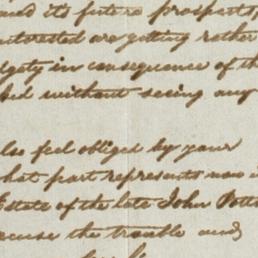 and its future prospects,
interested are getting rather
dgety in consequence of th
ked without seeing any
lso feel obliged by your
hat part represents now i
Estate of the late John Potts
xcuse the trouble and